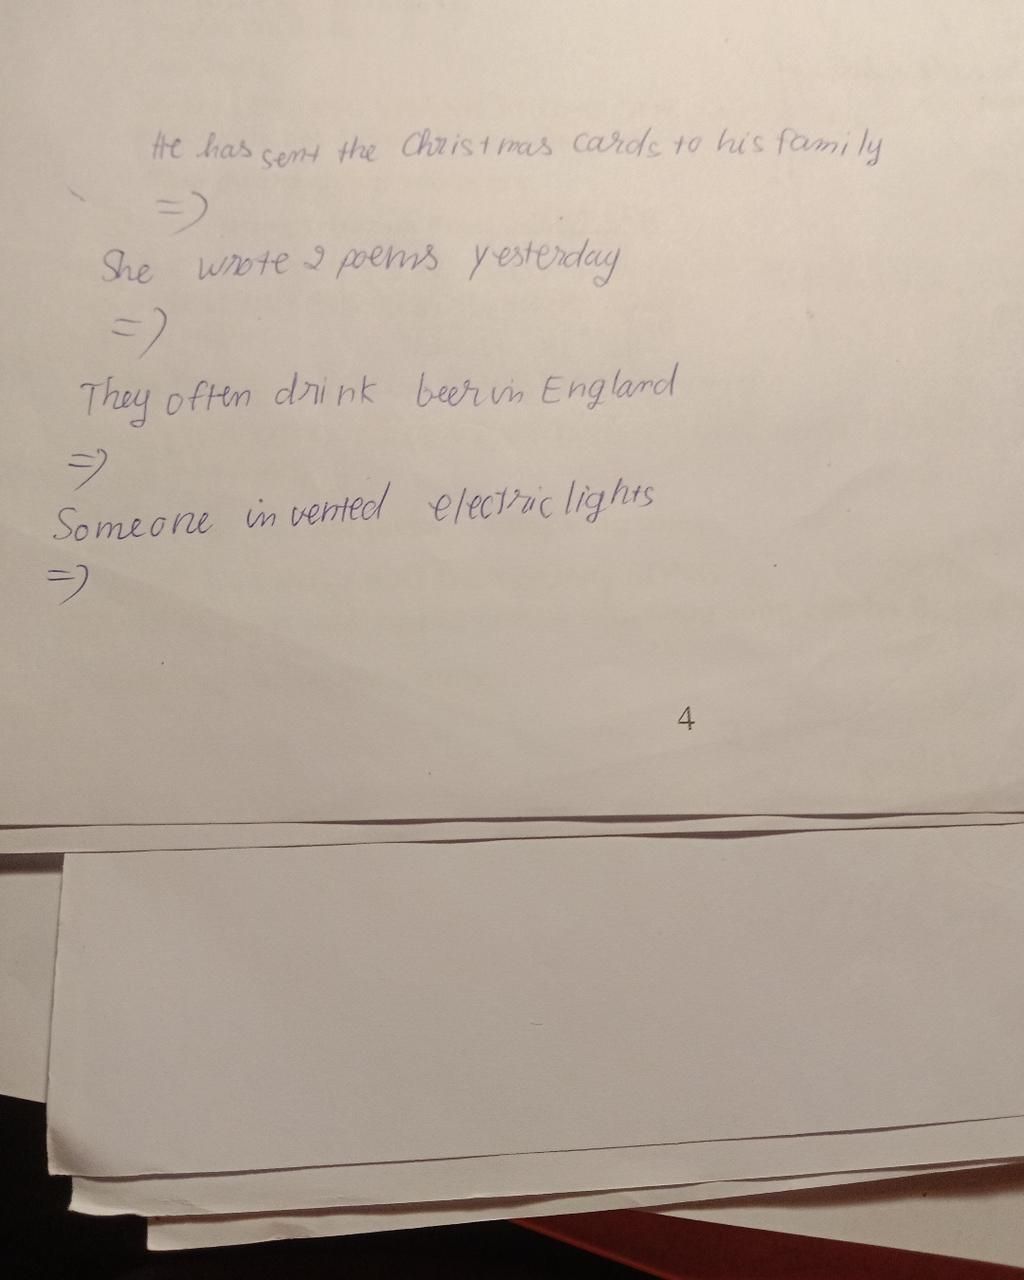 He has sent the Christmas cards to his family
=>
She wrote 2 poems yesterday
=>
They often drink beer in England
=>
Someone invented electric lights
=>
4